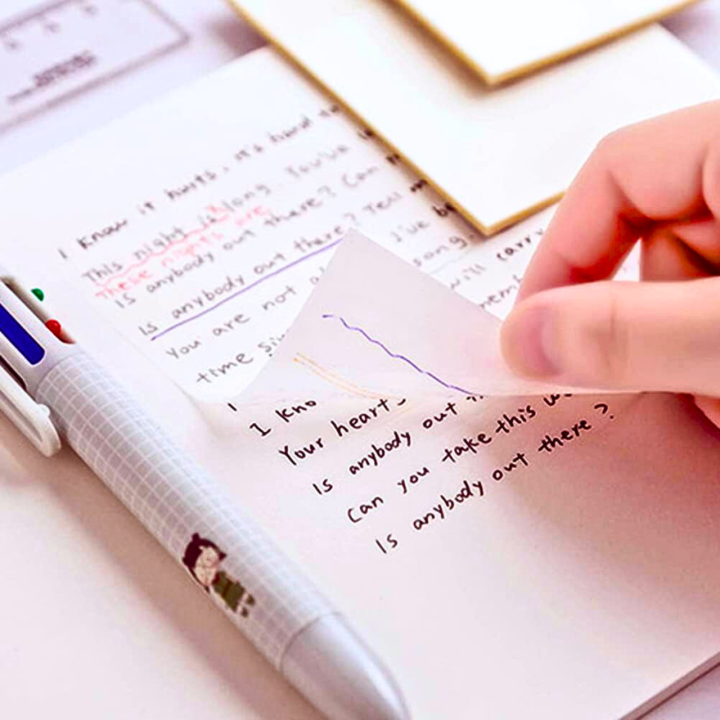 I know it hurts, it's hard to
This night is long. You've
These nights are
Is anybody out there? Can
Is anybody out there? Tell m
You are not al I've b
time si song.
I kno will carry
Your heart
Is anybody out
Can you take this
Is anybody out there?